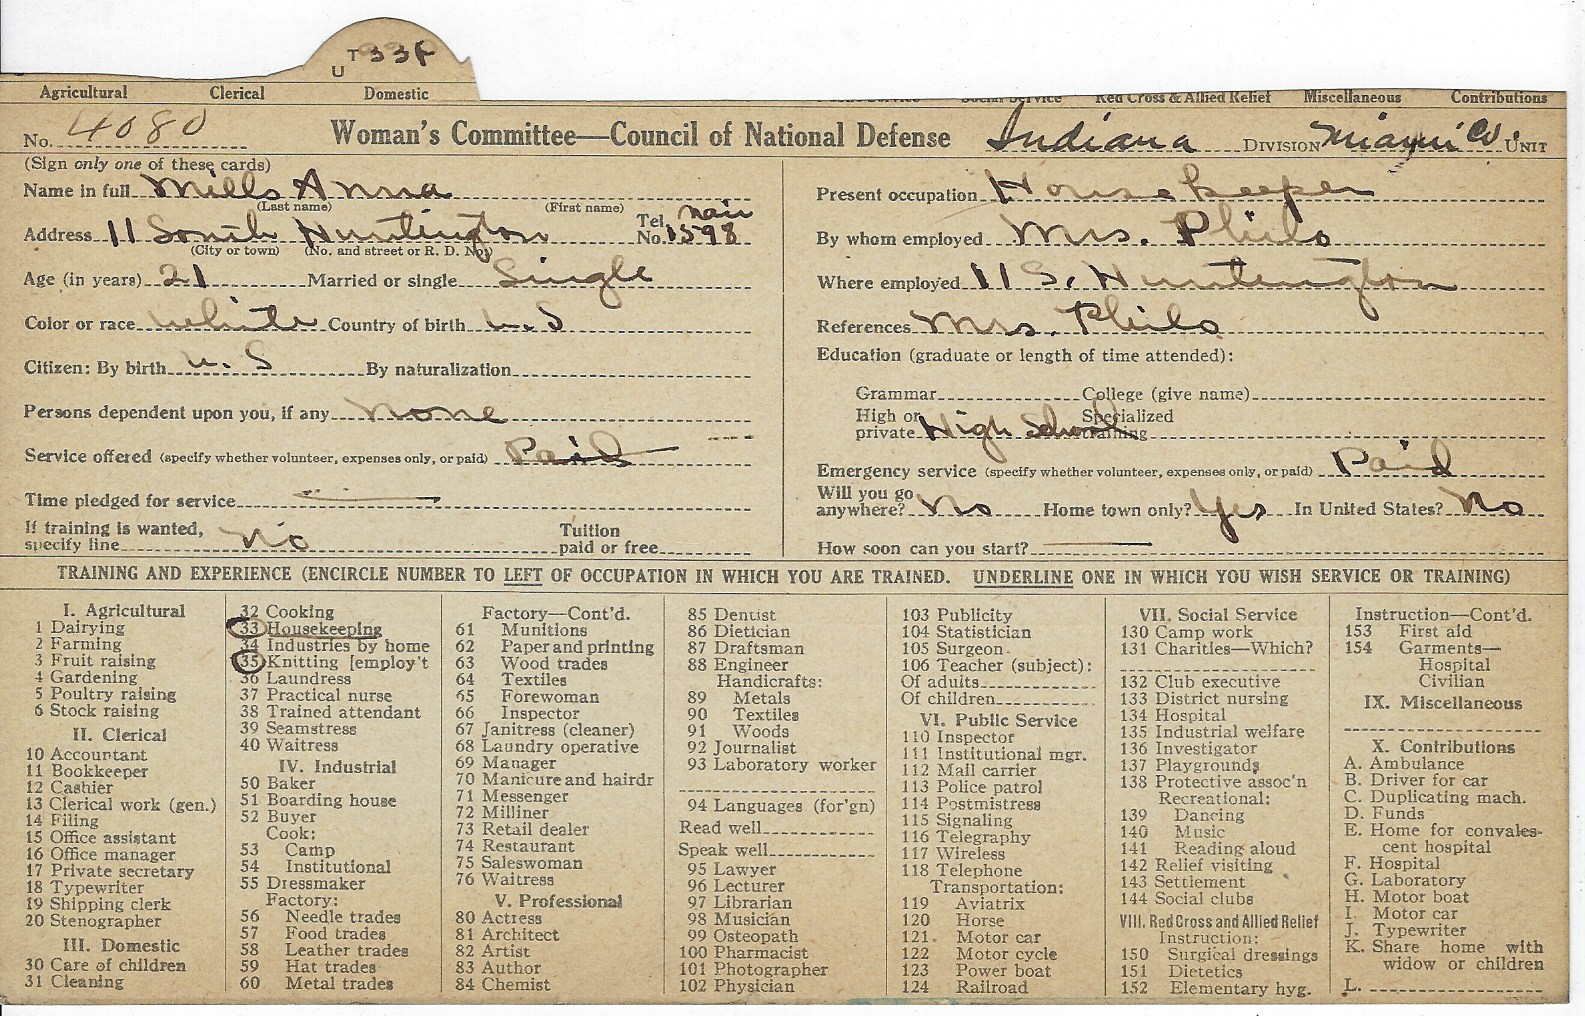 U T 33F
Agricultural Clerical Domestic Social Service Red Cross & Allied Relief Miscellaneous Contributions
No. 4080 Woman's Committee—Council of National Defense Indiana DIVISION Miami Co. UNIT
(Sign only one of these cards)
Name in full Mills Anna
(Last name) (First name)
Address 11 South Huntington Tel. No. Main 1598
(City or town) (No. and street or R. D. No.)
Age (in years) 21 Married or single Single
Color or race White Country of birth U.S
Citizen: By birth U.S By naturalization
Persons dependent upon you, if any None
Service offered (specify whether volunteer, expenses only, or paid) Paid
Time pledged for service
If training is wanted, specify line No Tuition paid or free
Present occupation Housekeeper
By whom employed Mrs. Philo
Where employed 11 S. Huntington
References Mrs. Philo
Education (graduate or length of time attended):
Grammar College (give name)
High or private High School Specialized training
Emergency service (specify whether volunteer, expenses only, or paid) Paid
Will you go anywhere? No Home town only? Yes In United States? No
How soon can you start?
TRAINING AND EXPERIENCE (ENCIRCLE NUMBER TO LEFT OF OCCUPATION IN WHICH YOU ARE TRAINED. UNDERLINE ONE IN WHICH YOU WISH SERVICE OR TRAINING)
I. Agricultural
1 Dairying
2 Farming
3 Fruit raising
4 Gardening
5 Poultry raising
6 Stock raising
II. Clerical
10 Accountant
11 Bookkeeper
12 Cashier
13 Clerical work (gen.)
14 Filing
15 Office assistant
16 Office manager
17 Private secretary
18 Typewriter
19 Shipping clerk
20 Stenographer
III. Domestic
30 Care of children
31 Cleaning
32 Cooking
33 Housekeeping
34 Industries by home
35 Knitting [employ't
36 Laundress
37 Practical nurse
38 Trained attendant
39 Seamstress
40 Waitress
IV. Industrial
50 Baker
51 Boarding house
52 Buyer
Cook:
53 Camp
54 Institutional
55 Dressmaker
Factory:
56 Needle trades
57 Food trades
58 Leather trades
59 Hat trades
60 Metal trades
Factory—Cont'd.
61 Munitions
62 Paper and printing
63 Wood trades
64 Textiles
65 Forewoman
66 Inspector
67 Janitress (cleaner)
68 Laundry operative
69 Manager
70 Manicure and hairdr
71 Messenger
72 Milliner
73 Retail dealer
74 Restaurant
75 Saleswoman
76 Waitress
V. Professional
80 Actress
81 Architect
82 Artist
83 Author
84 Chemist
85 Dentist
86 Dietician
87 Draftsman
88 Engineer
Handicrafts:
89 Metals
90 Textiles
91 Woods
92 Journalist
93 Laboratory worker
94 Languages (for'gn)
Read well
Speak well
95 Lawyer
96 Lecturer
97 Librarian
98 Musician
99 Osteopath
100 Pharmacist
101 Photographer
102 Physician
103 Publicity
104 Statistician
105 Surgeon
106 Teacher (subject):
Of adults
Of children
VI. Public Service
110 Inspector
111 Institutional mgr.
112 Mail carrier
113 Police patrol
114 Postmistress
115 Signaling
116 Telegraphy
117 Wireless
118 Telephone
Transportation:
119 Aviatrix
120 Horse
121 Motor car
122 Motor cycle
123 Power boat
124 Railroad
VII. Social Service
130 Camp work
131 Charities—Which?
132 Club executive
133 District nursing
134 Hospital
135 Industrial welfare
136 Investigator
137 Playgrounds
138 Protective assoc'n
Recreational:
139 Dancing
140 Music
141 Reading aloud
142 Relief visiting
143 Settlement
144 Social clubs
VIII. Red Cross and Allied Relief
Instruction:
150 Surgical dressings
151 Dietetics
152 Elementary hyg.
Instruction—Cont'd.
153 First aid
154 Garments—
Hospital
Civilian
IX. Miscellaneous
X. Contributions
A. Ambulance
B. Driver for car
C. Duplicating mach.
D. Funds
E. Home for convales-
cent hospital
F. Hospital
G. Laboratory
H. Motor boat
I. Motor car
J. Typewriter
K. Share home with
widow or children
L.